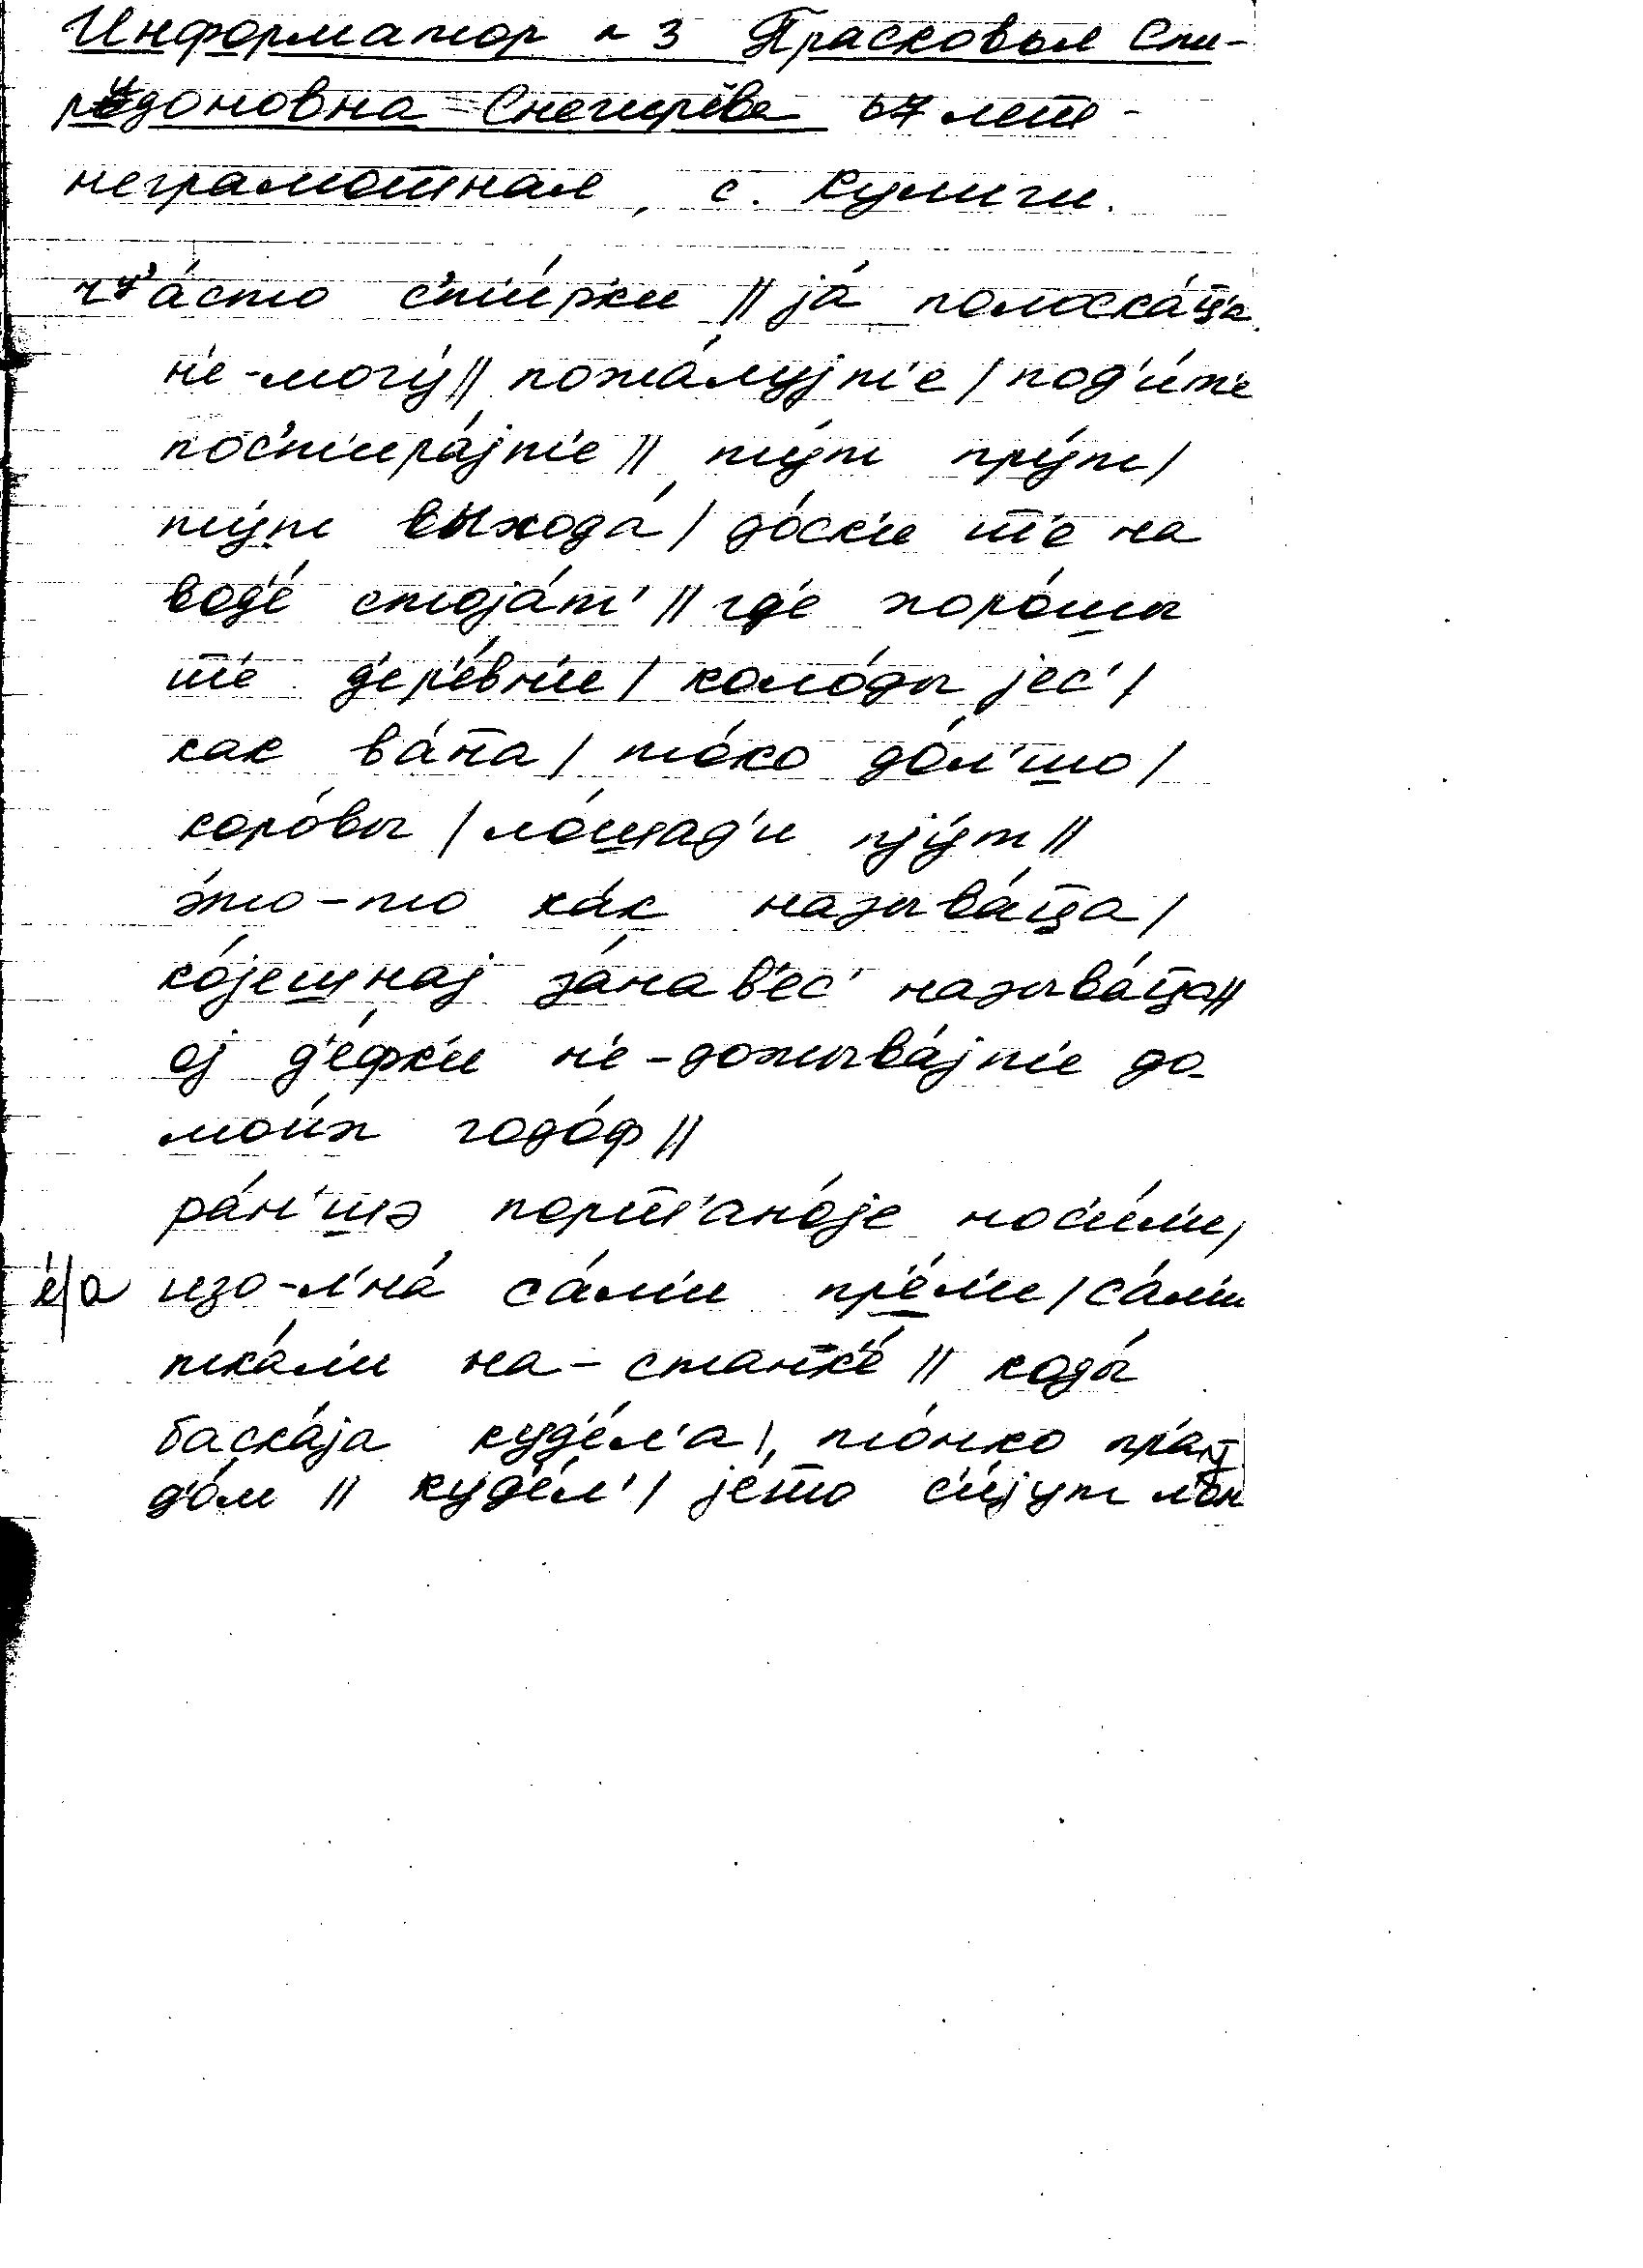 Информатор № 3 Прасковья Спи-
ридоновна Снегирёва 67 лет -
неграмотная, с. Кулиги.
чʼа́сто с'т'и́рк'и // jа́ полоска́ца
н'е-могу́ // пожа́лујт'е / под'и́т'е
пос'т'ира́јт'е // ту́т пру́т /
ту́т выхода́ / до́ск'и т'е на
вод'е́ стоjа́т' // гд'е хоро́шы
т'е д'ер'е́вн'и / коло́ды jес' /
как ва́на / то́ко до́л'шо /
коро́вы / ло́шад'и пjу́т //
э́то-то ка́к называ́ца /
ко́jешнаj за́нав'ес' называ́ца //
оj д'е́фк'и н'е-дожыва́јт'е до-
мои́х годо́ф //
ра́н'шэ порт'ано́jе нос'и́л'и /
е́/а изо-л'на́ са́м'и пр'е́л'и / са́м'и
тка́л'и на-станк'е́ // коды́
баска́jа куд'е́л'а /, то́нко пр'а-
д'о́м // куд'е́л' / jе́то с'и́jут л'о́н